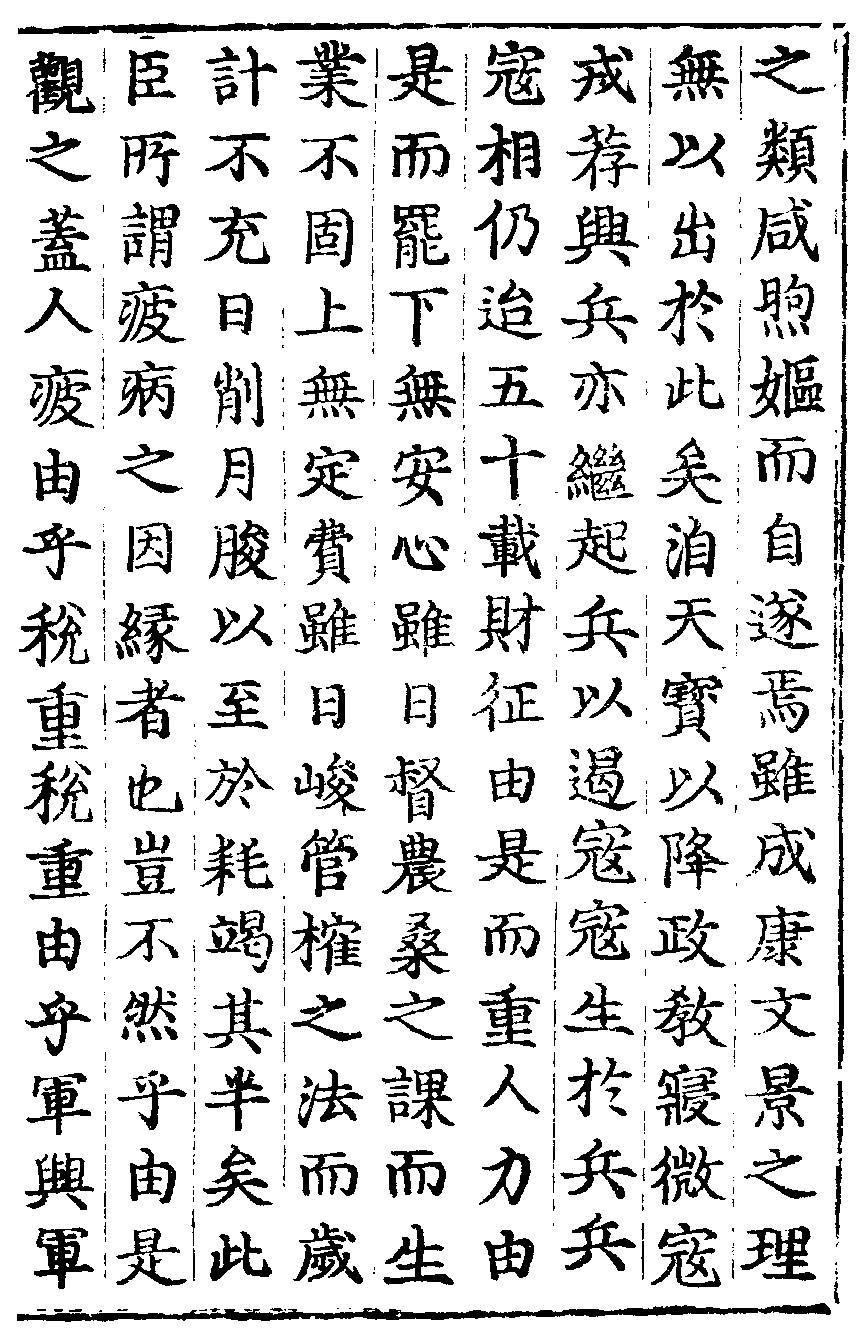 之類咸煦嫗而自遂焉雖成康文景之理
無以出於此矣洎天寶以降政教寖微寇
戎荐興兵亦繼起兵以遏寇寇生於兵兵
寇相仍迨五十載財征由是而重人力由
是而罷下無安心雖日督農桑之課而生
業不固上無定費雖日峻管榷之法而歲
計不充日削月朘以至於耗竭其半矣此
臣所謂疲病之因緣者也豈不然乎由是
觀之蓋人疲由乎稅重稅重由乎軍興軍